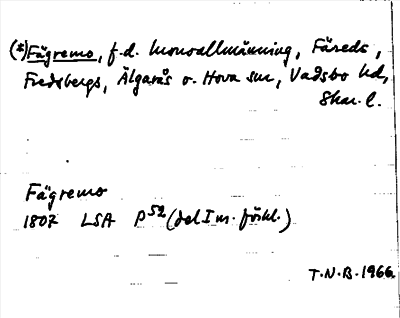 (*) Fägremo, f.d. kronoallmänning, Färeds,
Fredsbergs, Älgarås o. Hova snr, Vadsbo hd,
Skar. l.
Fägremo
1807 LSA P52 (del I m. förkl.)
T.N.B. 1966.